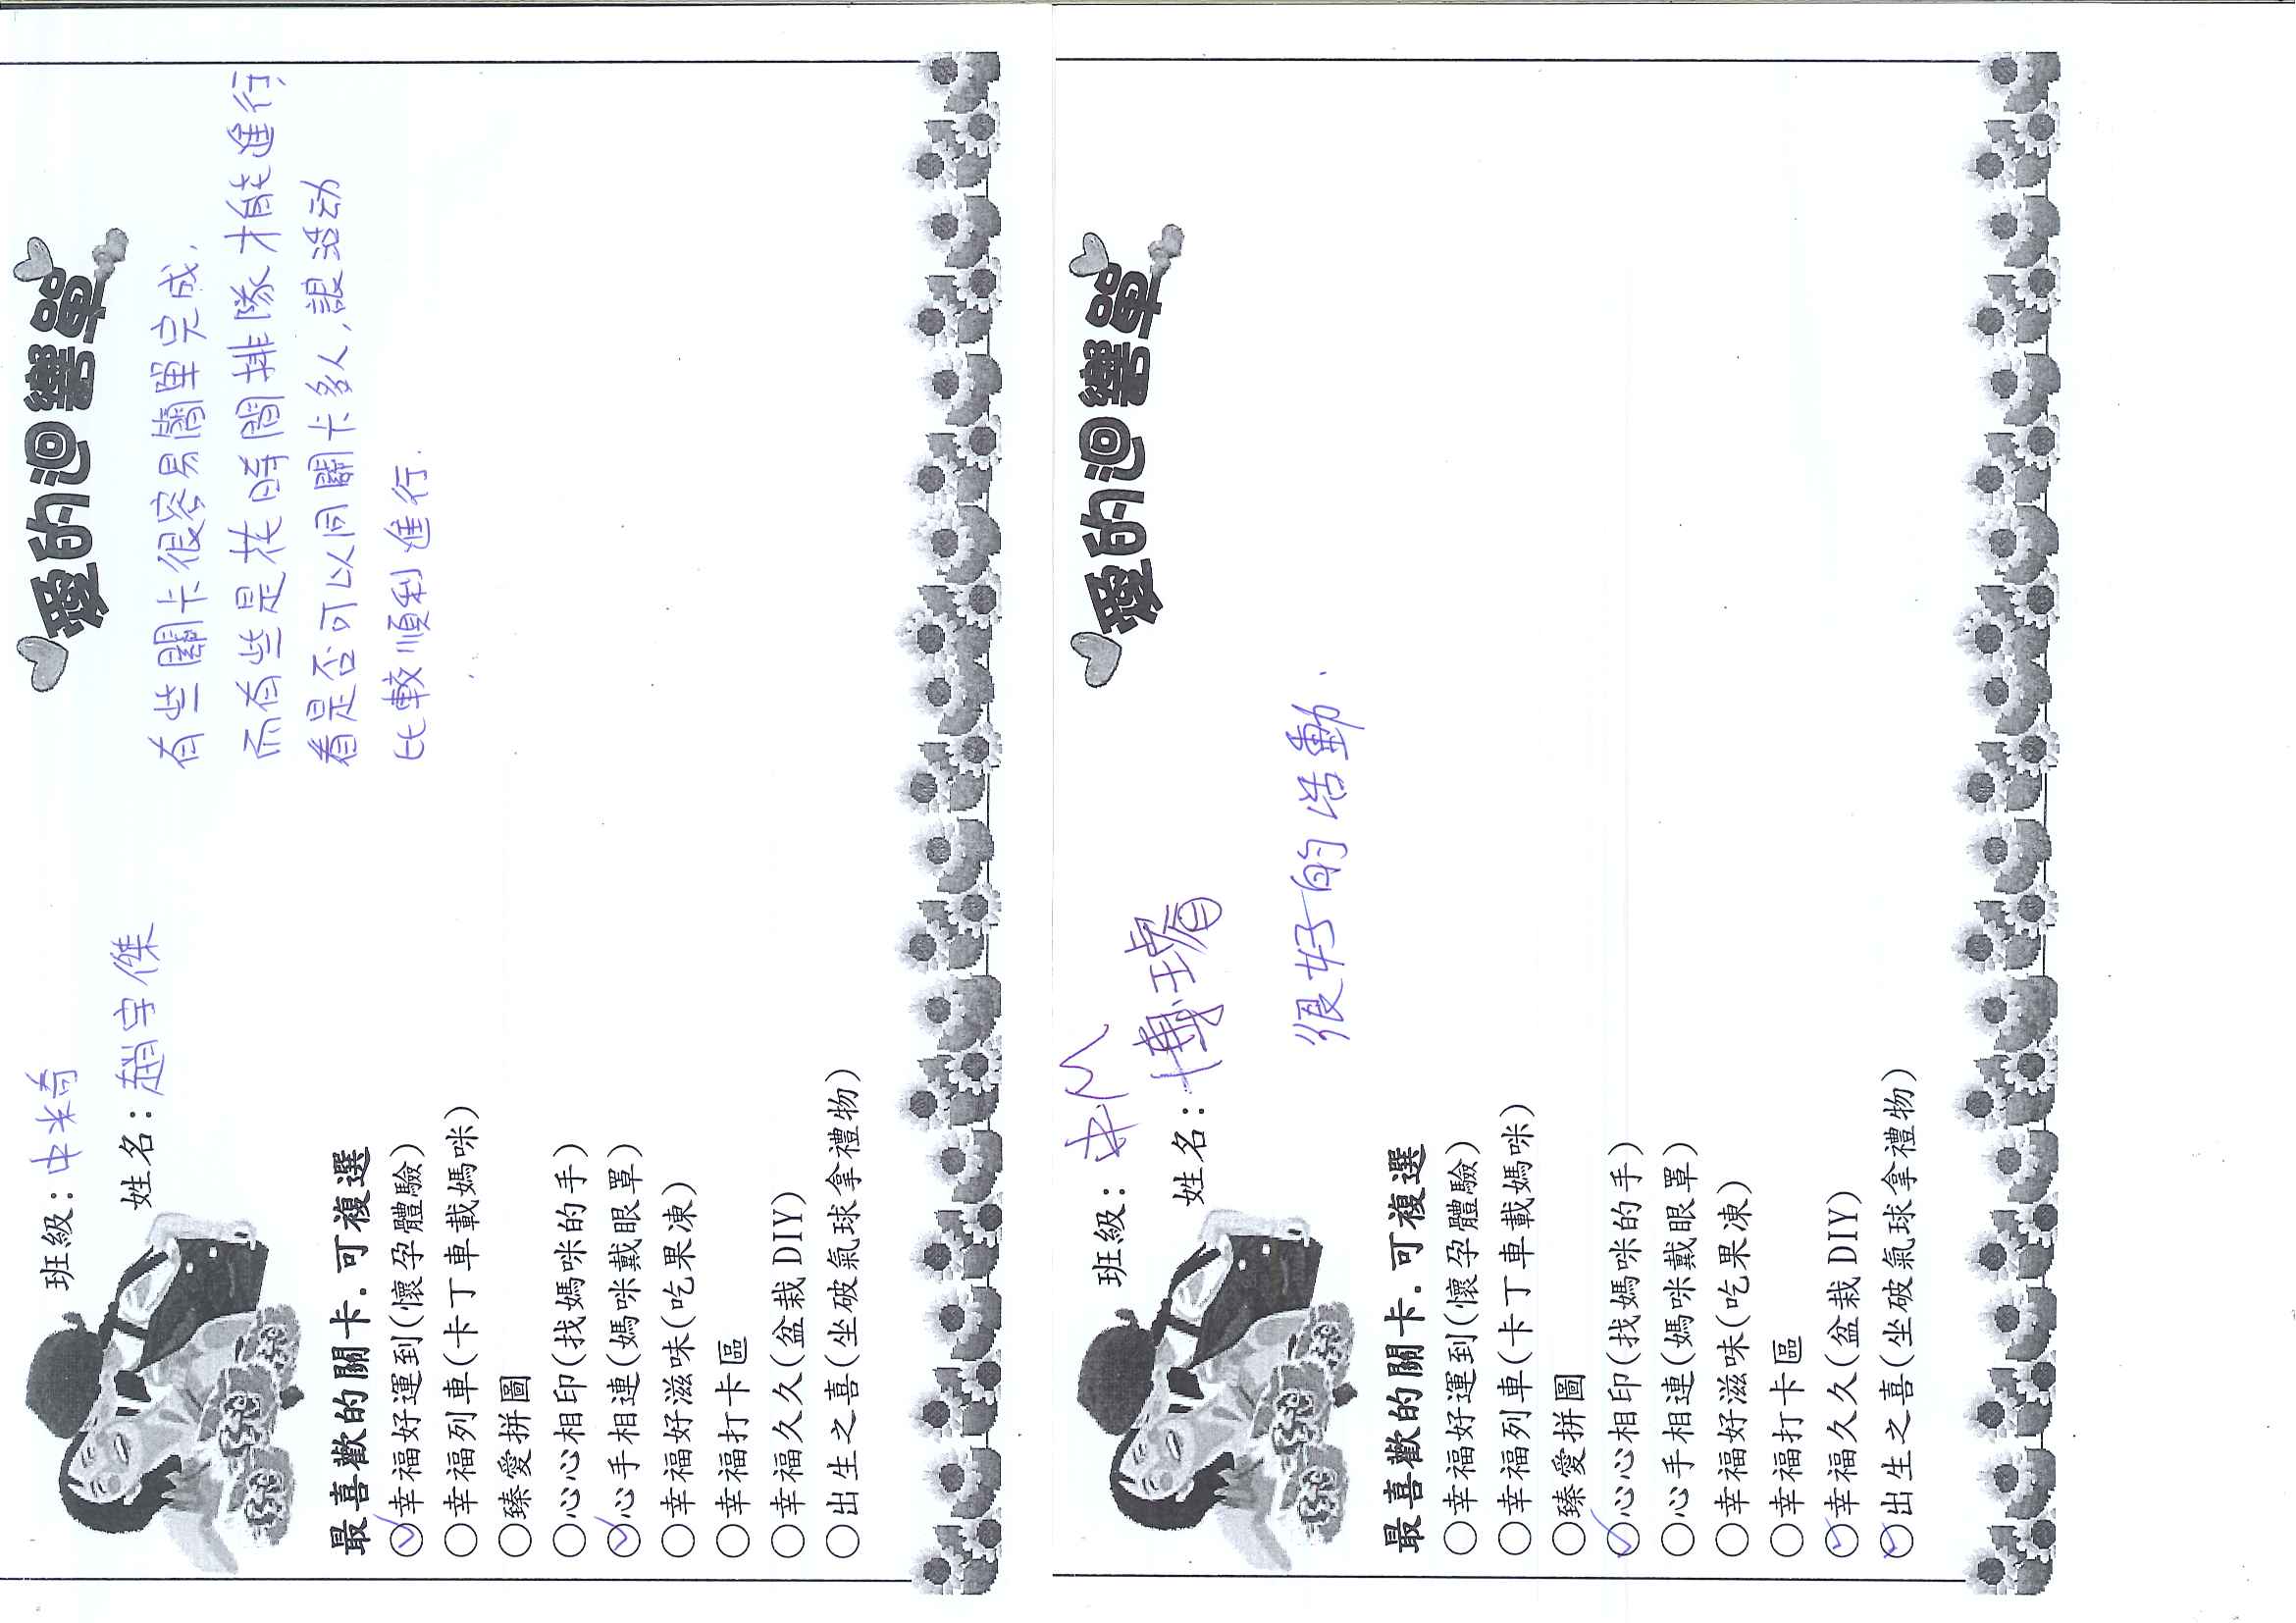 愛的迴響單
班級:中
姓名:趙宇傑
有些關卡很容易簡單完成.
而有些是花時間排隊才能進行,
看是否可以同關卡多人,讓活动
比較順利進行.
最喜歡的關卡.可複選
○幸福好運到(懷孕體驗)
○幸福列車(卡丁車載媽咪)
○臻愛拼圖
○心心相印(找媽咪的手)
○心手相連(媽咪戴眼罩)
○幸福好滋味(吃果凍)
○幸福打卡區
○幸福久久(盆栽DIY)
○出生之喜(坐破氣球拿禮物)
愛的迴響單
班級:中
姓名:
很好的活動.
最喜歡的關卡.可複選
○幸福好運到(懷孕體驗)
○幸福列車(卡丁車載媽咪)
○臻愛拼圖
○心心相印(找媽咪的手)
○心手相連(媽咪戴眼罩)
○幸福好滋味(吃果凍)
○幸福打卡區
○幸福久久(盆栽DIY)
○出生之喜(坐破氣球拿禮物)